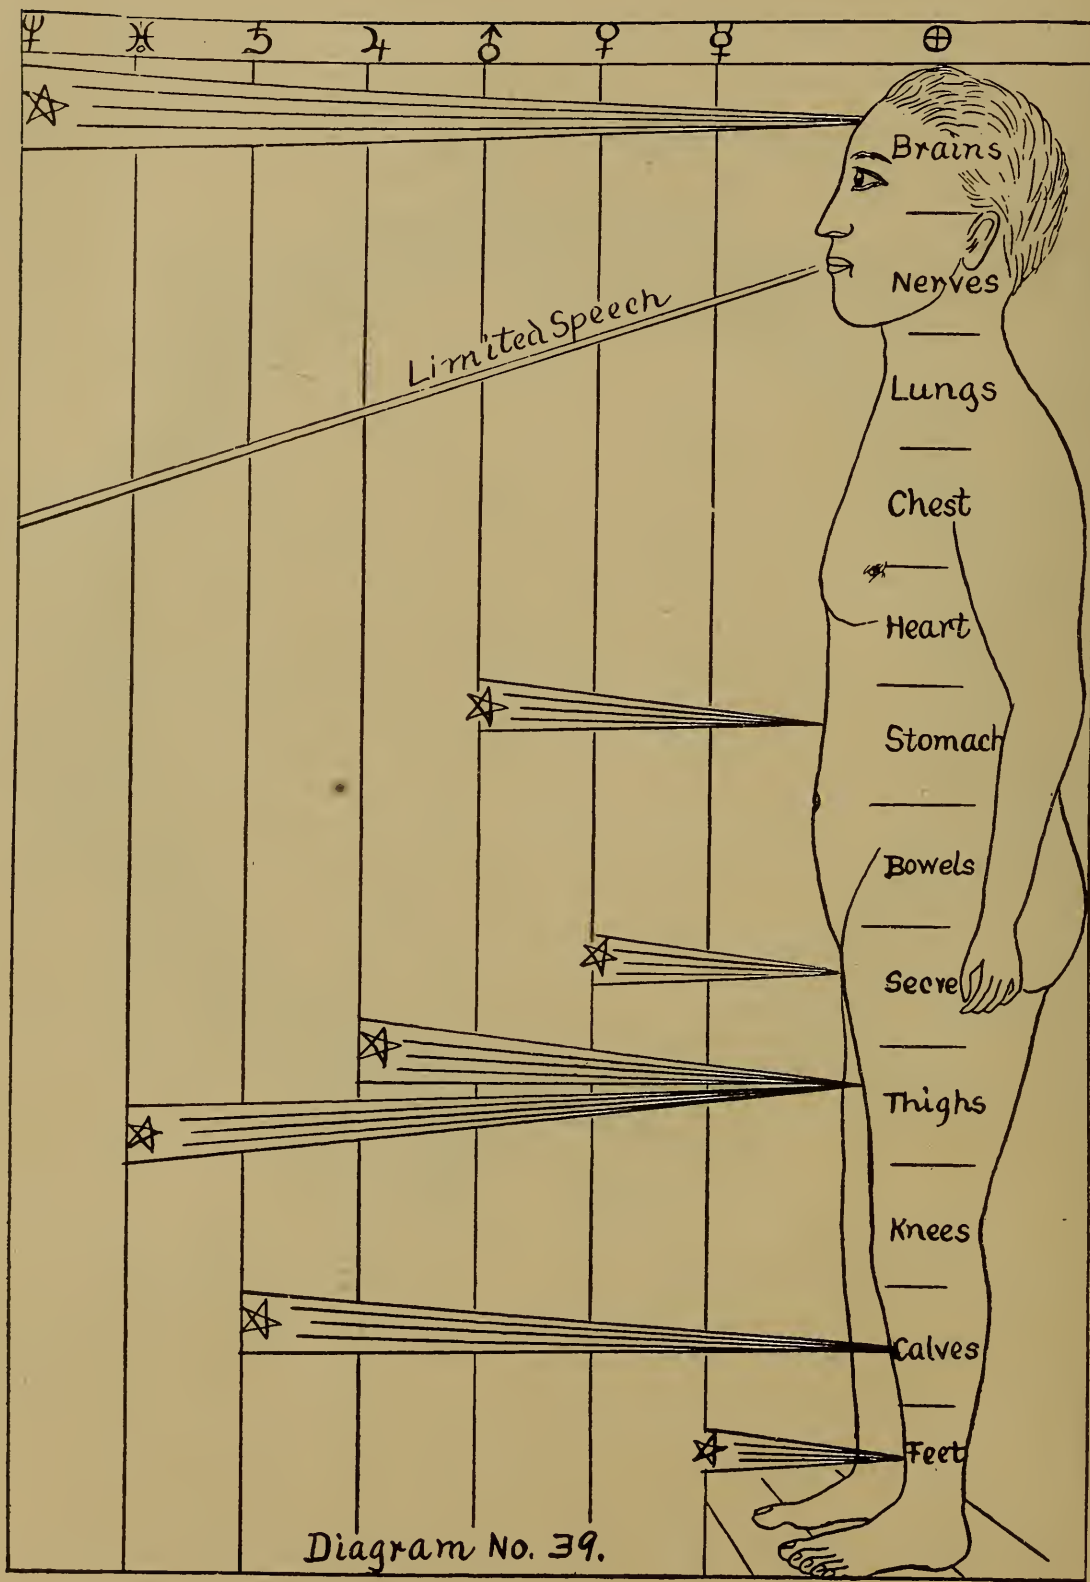 ♆ ♅ ♄ ♃ ♂ ♀ ☿ ⊕
Brains
Nerves
Limited Speech
Lungs
Chest
Heart
Stomach
Bowels
Secre
Thighs
Knees
Calves
Feet
Diagram No. 39.